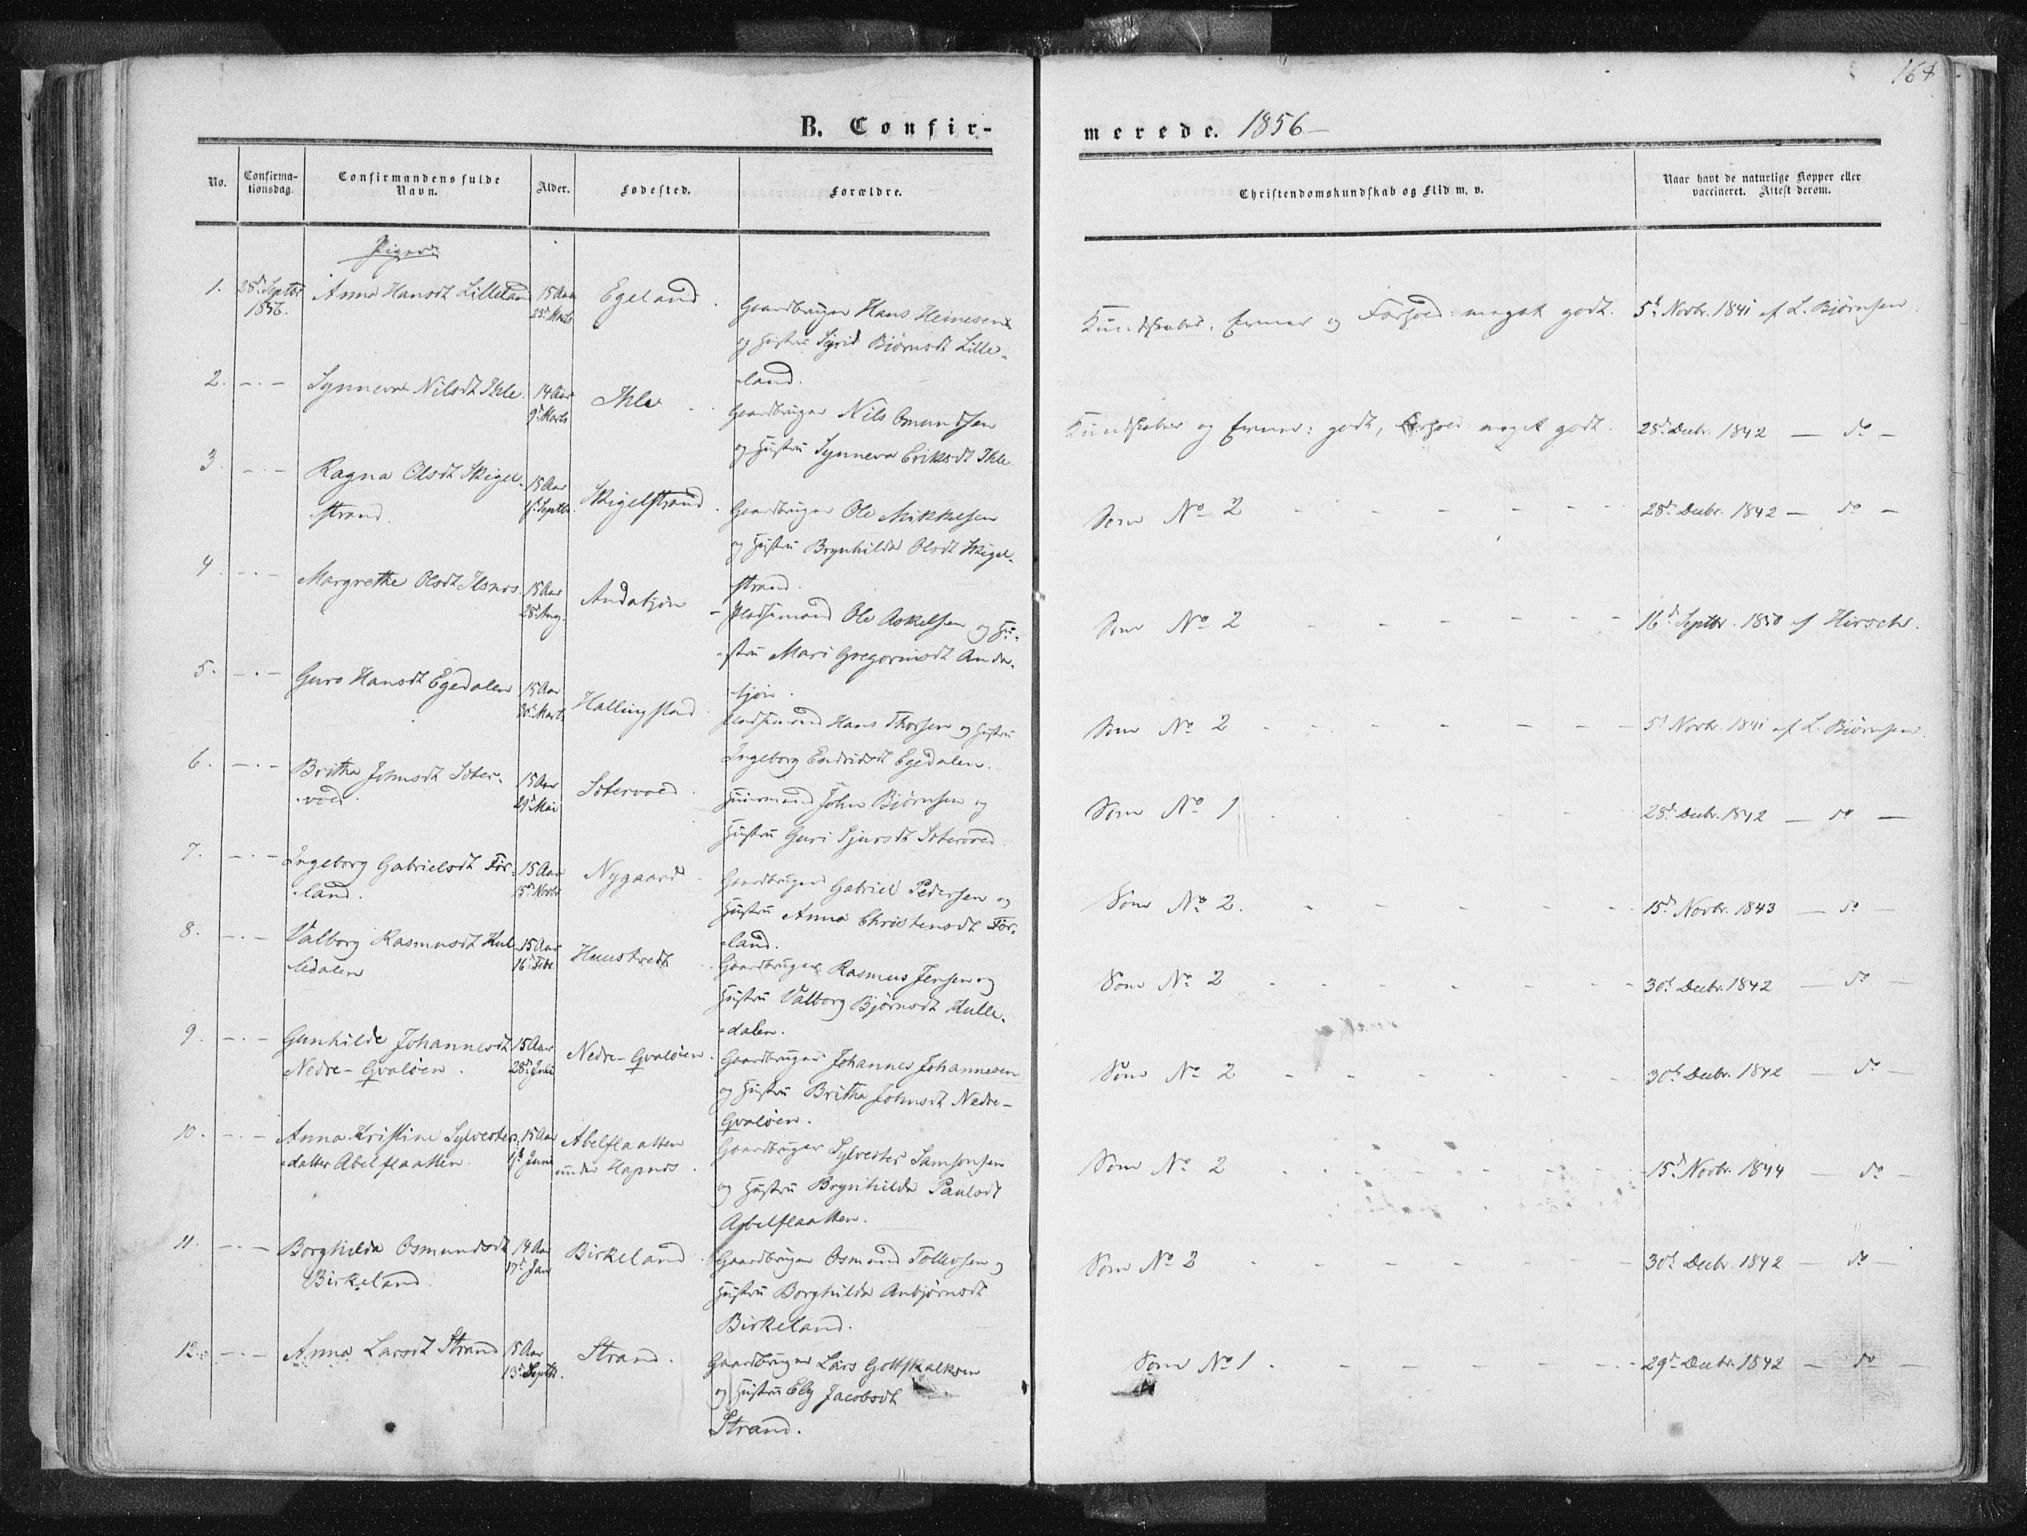 164
B. Confir-
merede. 1856 —
No.
Confirma-
tionsdag.
Confirmandens fulde
Navn.
Alder.
Fødested.
Forældre.
Christendomskundskab og Flid m. v.
Naar havt de naturlige Kopper eller
vaccineret. Attest derom.
Piger
1. 28d Septbr 1856. Anna Hansdt Lilleland 15 Aar 23d Marts Egeland. Gaardbruger Hans Heinesen
og Hustru Syrid Bjørnsdt Lille-
land.
Kundskaber, Evner og Forhold: meget godt. 5d Novbr. 1841 af L. Bjørnsen.
2. — · — Synneva Nilsdt Ihle 14 Aar 9d Marts Ihle Gaardbruger Nils Omundsen
og Hustru Synneva Eriksdt Ihle
Kundskaber og Evner: godt, Forhold meget godt. 25d Decbr. 1842 — do —
3. — · — Ragna Olsdt Skigel-
strand. 15 Aar Septbr. Skigelstrand. Gaardbruger Ole Mikkelsen
og Hustru Brynhilda Olsdt Skigel-
strand.
Som No 2 28d Decbr. 1842 — do —
4. — · — Margrethe Olsdt 15 Aar 28d Aug. Andatjøn Pladsmand Ole Askelsen og Hu-
stru Mari Gregoriusdt Anda-
tjøn.
Som No 2 16d Septbr. 1850 af Hirsch.
5. — · — Guro Hansdt Egedalen 15 Aar 30d Marts Hallingstad Pladsmand Hans Thorsen og Hustru
Ingeborg Endridsdt Egedalen.
Som No 2 5d Novbr. 1841 af L. Bjørnsen.
6. — · — Britha Johnsdt Stter-
voed. 15 Aar 29d Mai Stervoed. Huusmand John Bjørnsen og
Hustru Guri Sjursdt
Som No 1 28d Decbr. 1842 — do —
7. — · — Ingeborg Gabrielsdt Før-
land. 15 Aar 15d Novbr Nygaard Gaardbruger Gabriel Pedersen og
Hustru Anna Christensdt Før-
land.
Som No 2. 15d Novbr. 1843 — do —
8. — · — Valborg Rasmusdt Hul-
ledalen 15 Aar 16d Febr Huustredt Gaardbruger Rasmus Jensen og
Hustru Valborg Bjørnsdt Hulle-
dalen.
Som No 2 30d Decbr. 1842 — do —
9. — · — Gunhilde Johannesdt
Nedre-Qvaløen. 15 Aar 28d Juli Nedre-Qvaløen. Gaardbruger Johannes Johannesen
og Hustru Britha Johnsdt Nedre-
Qvaløen.
Som No 2 30d Decbr. 1842 — do —
10. — · — Anna Kristine Sylvester-
datter Abelflaatten. 15 Aar Juni Abelflaatten
under Hapnes. Gaardbruger Sylvester Samsonsen
og Hustru Brynhilda Paulsdt
Abelflaatten.
Som No 2 15d Novbr. 1844 — do —
11. — · — Borghilda Osmundsdt
Birkeland. 14 Aar 17d Jan Birkeland. Gaardbruger Osmund Tollevsen og
Hustru Borghilda Anbjørnsdt
Birkeland.
Som No 2 30d Decbr. 1842 — do —
12. — · — Anna Larsdt Strand 15 Aar 13d Septbr. Strand. Gaardbruger Lars Gottskalksen
og Hustru Ely Jacobsdt
Strand.
Som No 1. 29d Decbr. 1842 — do —